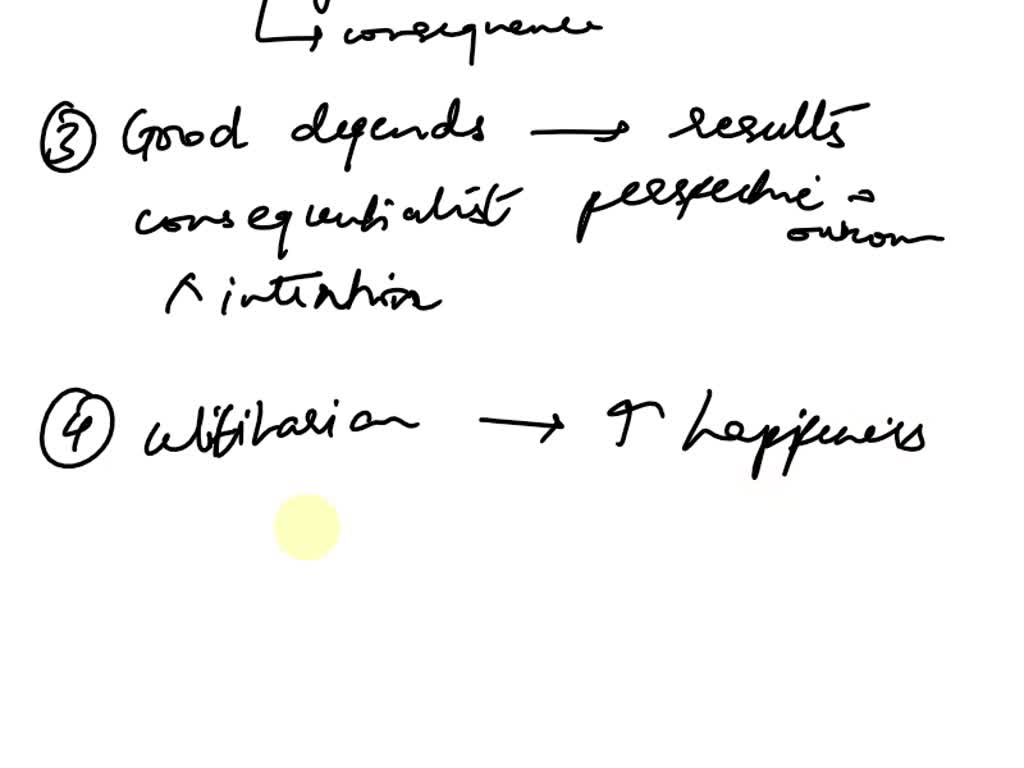 → consequence
③ Good depends → results
consequentialist perspective →
outcom
^ intention
④ utilitarian → ↑ happiness